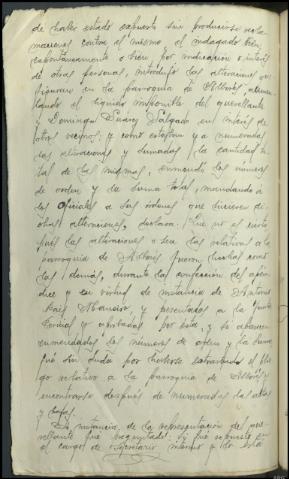 de haber estado expuesto sin producirse recla-
maciones contra el mismo el indagado bien
espontaneamente o bien por indicación e interés
de otras personas, introdujo las alteraciones que
figuran en la parroquia de aumen-
tando el líquido imponible del querellante
y Domingo Suarez Salgado en interés de
otros vecinos, y como estaban ya numeradas
las alteraciones y sumadas la cantidad to-
tal de las mismas, enmendó los números
de orden y la suma total, mandando a
los oficiales a sus órdenes que hicieren di-
chas alteraciones, declara: Que no es cierto,
pues las alteraciones o sea las relativas a la
parroquia de fueron hechas como
las demás, durante la confección del apen-
dice y en virtud de instancia de Antonio
y presentadas a la Junta
Pericial y aprobadas por esta, y se observan
enmendados los números de orden y la suma
que sin duda por haberse extraviado el plie-
go relativo a la parroquia de
encontrarse después de numeradas las altas
y bajas.
A instancia de la representación del que-
rellante fué preguntado: Si fué repuesto en
el cargo de Secretario interino y